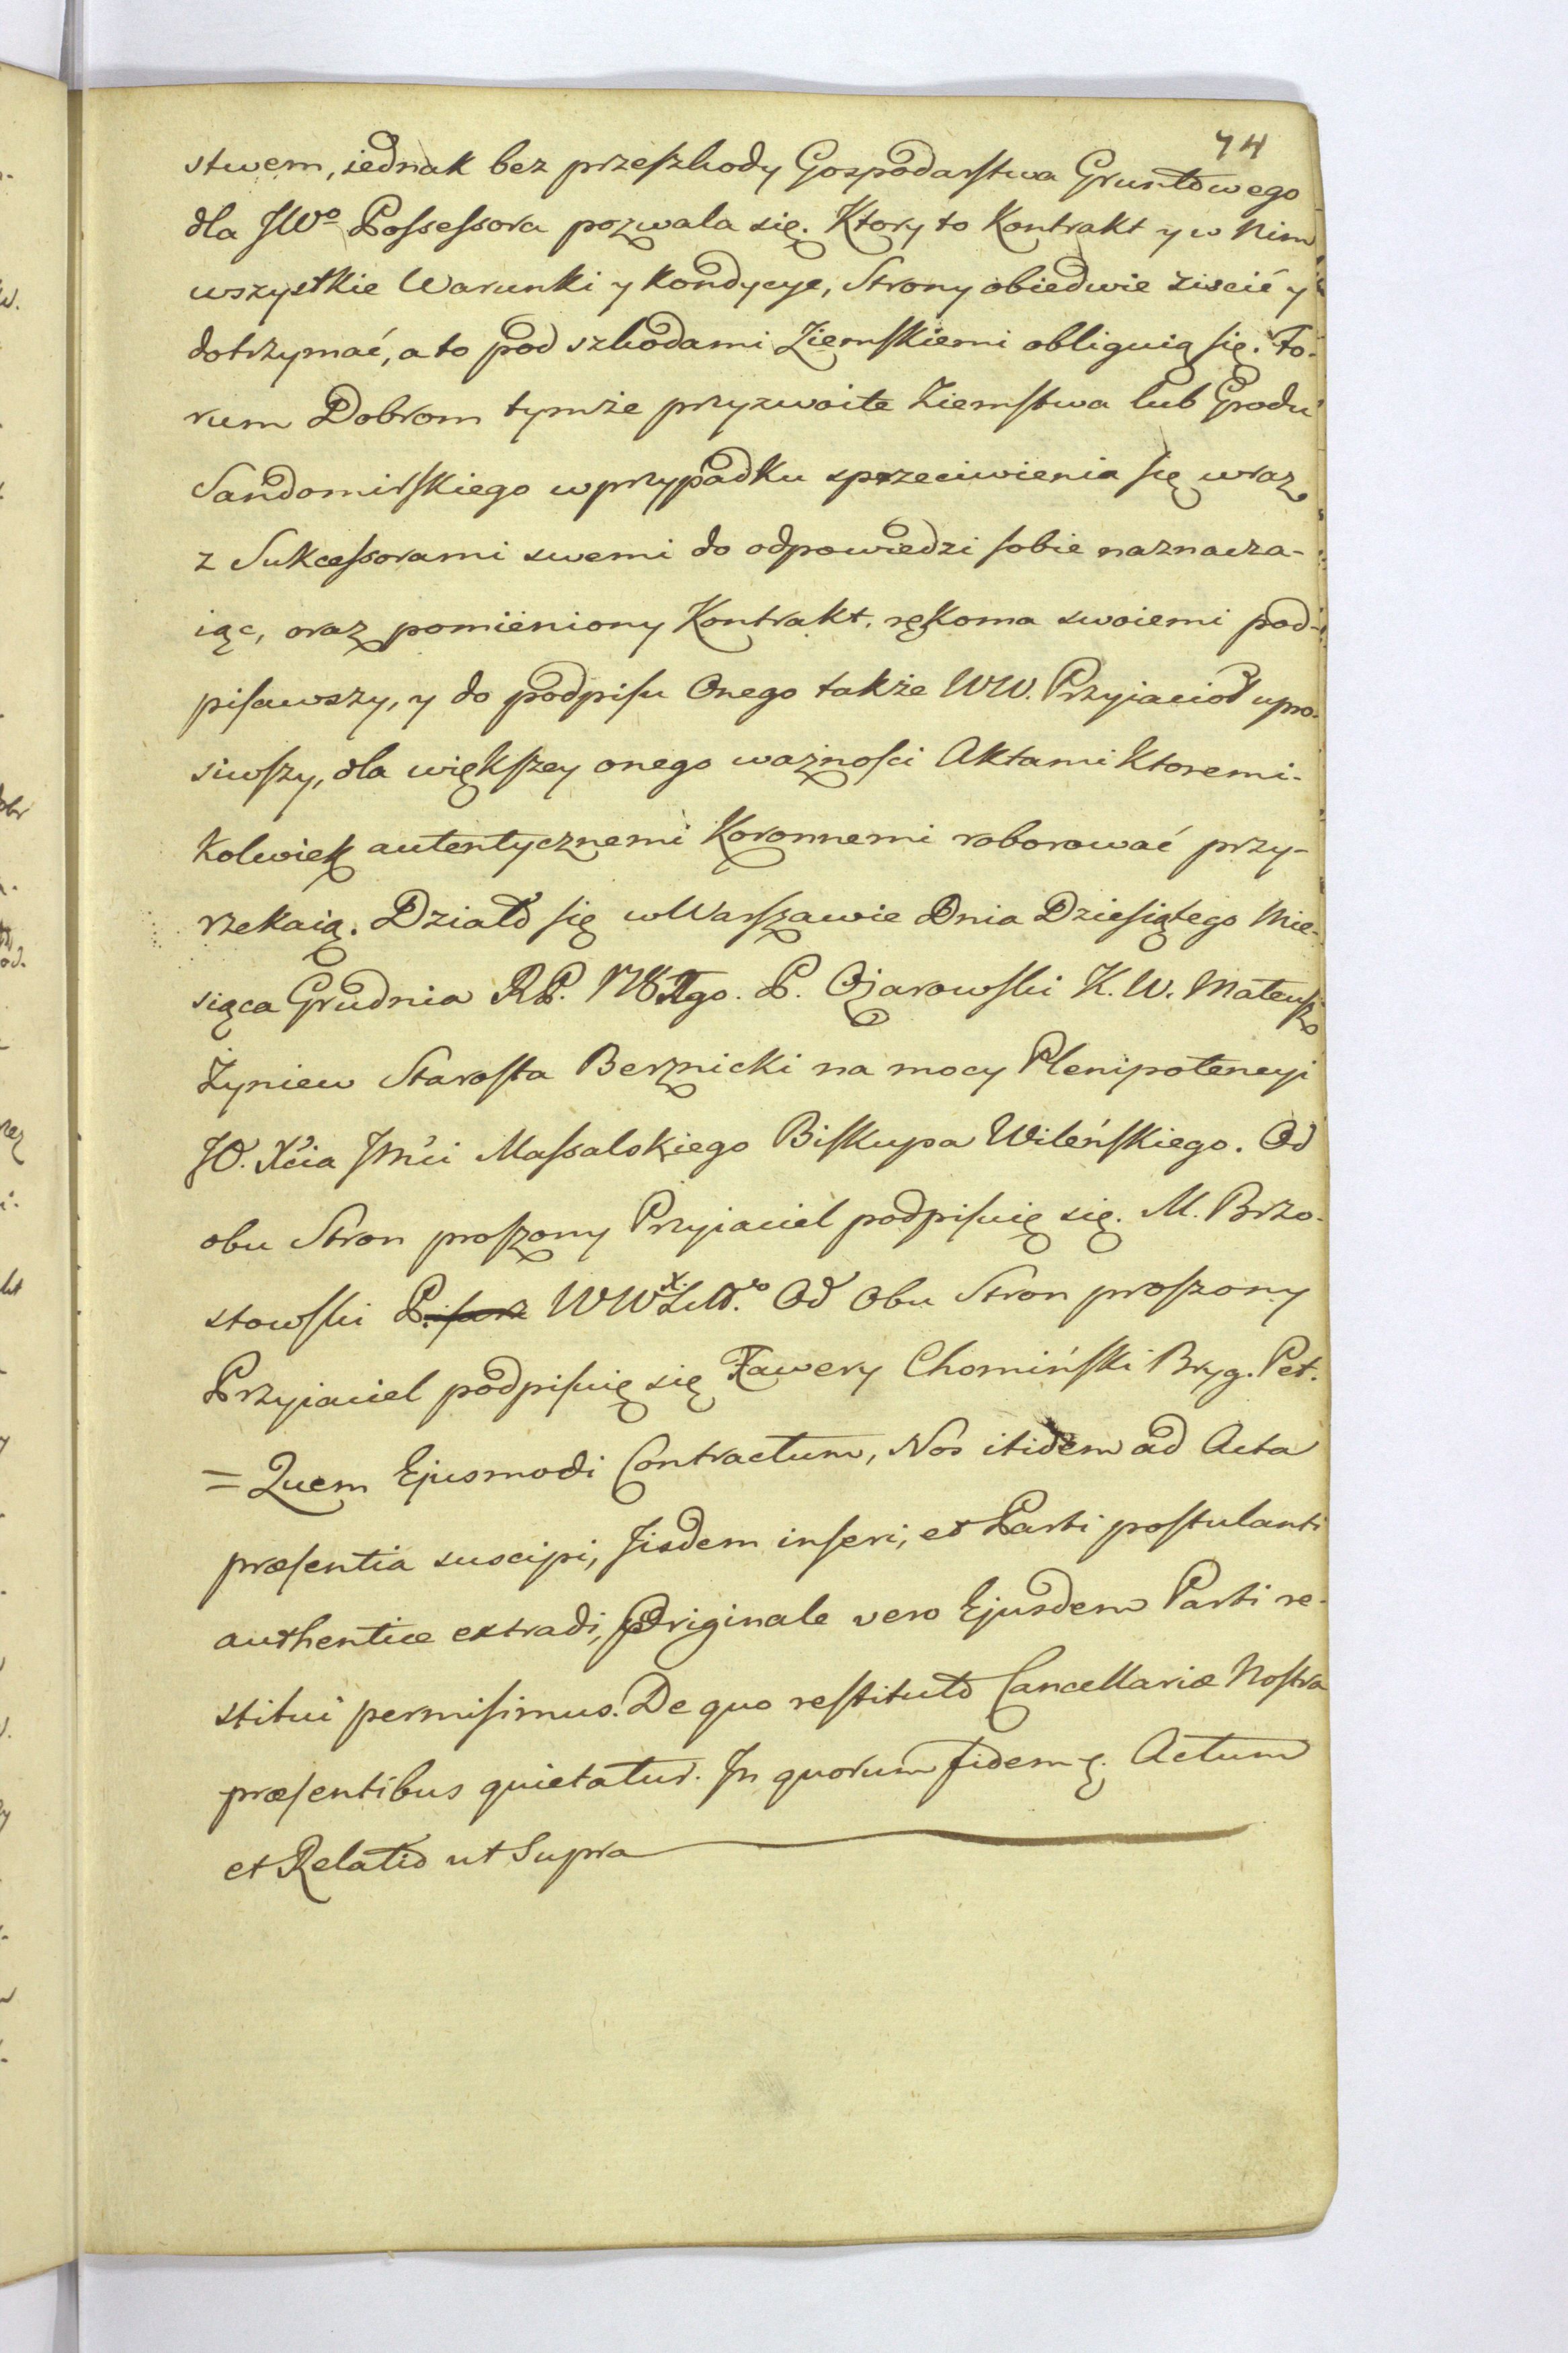 74
stwem, iednak bez przeszkody Gospodarstwa Gruntowego
dla JWo Possessora pozwala się. Ktory to Kontrakt y w nim
wszystkie Warunki y Kondycye, Strony obiedwie ziscić y
dotrzymać, a to pod szkodami Ziemskiemi obliguią się. Fo-
rum Dobrom tymże przyzwoite Ziemstwa lub Grodu
Sandomirskiego w przypadku sprzeciwienia się wraz
z Sukcessorami swemi do odpowiedzi sobie naznacza-
iąc, oraz pomieniony Kontrakt, rękoma swoiemi pod-
pisawszy, y do podpisu Onego także WW. Przyiacioł upro-
siwszy, dla większey onego ważności Aktami Ktoremi-
Kolwiek autentycznemi Koronnemi roborować przy-
rzekaią. Działo się w Warszawie Dnia Dziesiątego Mie-
siąca Grudnia RP. P. Ożarowski K. W. Mateusz
Żyniew Starosta Berznicki na mocy Plenipotencyi
JO. Xcia Jmci Massalskiego Biskupa Wileńskiego. Od
obu Stron proszony Przyiaciel podpisuię się. M. Brzo-
stowski P. WWXLitt. Od obu Stron proszony
Przyiaciel podpisuię się Xawery Chomiński Bryg. Pet.
= Quem Ejusmodi Contractum, Nos itidem ad Acta
præsentia suscipi, Jisdem inseri, et Parti postulanti
authentice extradi, Originale vero Ejusdem Parti re-
stitui permisimus. De quo restituto Cancellaria Nostra
præsentibus quietatur. In quorum fidem &. Actum
et Relatio ut Supra